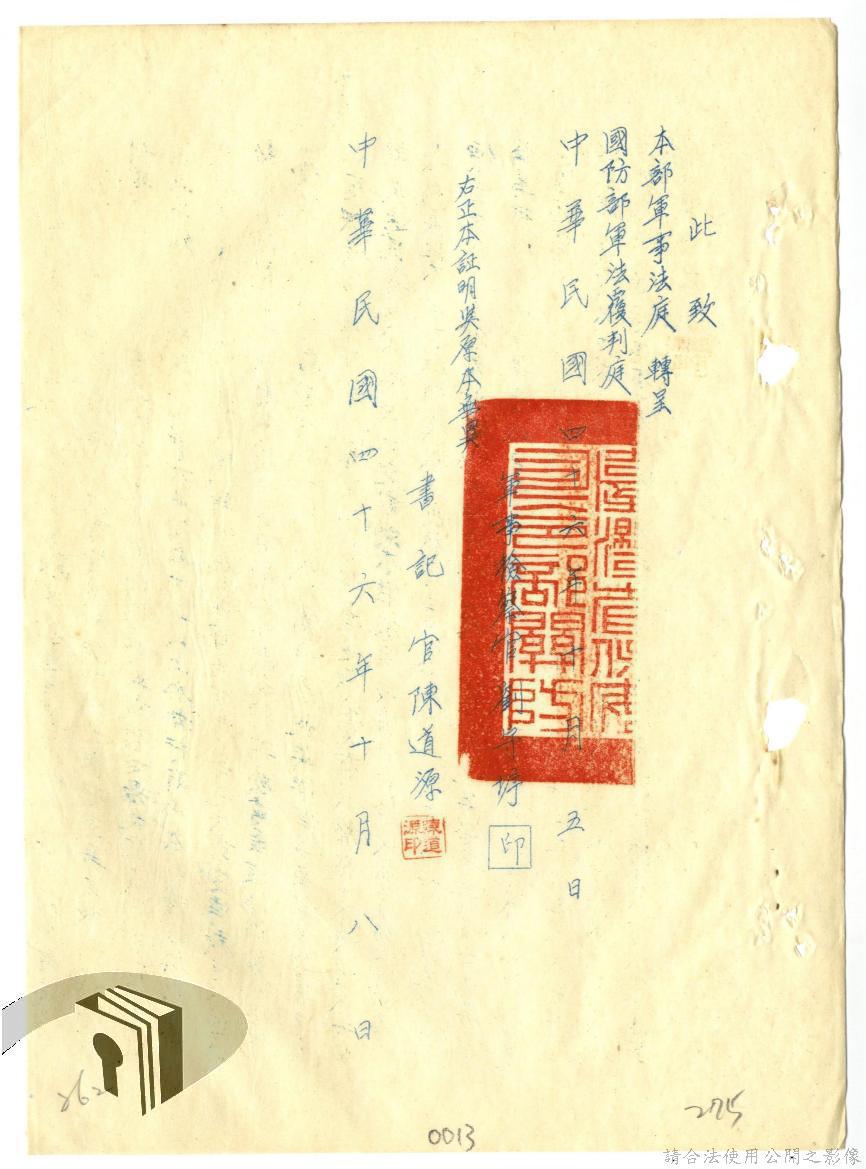 此致
本部軍事法庭 轉呈
國防部軍法覆判庭
中華民國四十六年十月五日
軍事檢察官
印
右正本証明與原本無異
書記官陳道源
陳道源印
中華民國四十六年十月八日
262
0013
275
請合法使用公開之影像